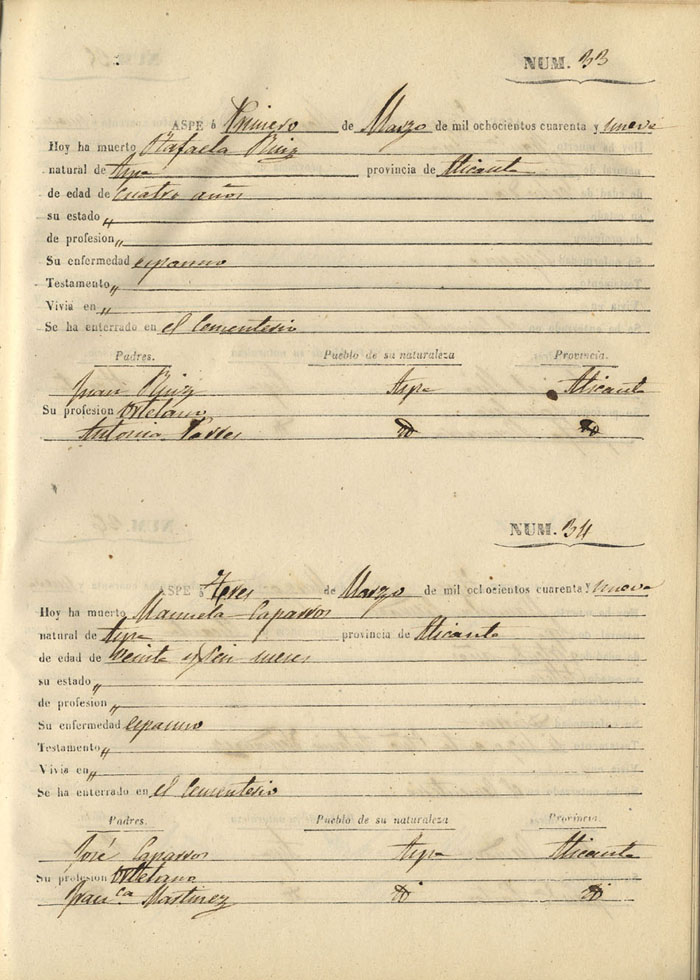 NUM. 33
ASPE á Primero de Marzo de mil ochocientos cuarenta y nueve
Hoy ha muerto Rafaela Ruiz
natural de Aspe provincia de Alicante
de edad de cuatro años
su estado „
de profesion „
Su enfermedad espasmo
Testamento „
Vivia en „
Se ha enterrado en el Cementerio
Padres. Pueblo de su naturaleza Provincia.
Juan Ruiz Aspe Alicante
Su profesion Ortelano
Antonia
NUM. 34
ASPE á Tres de Marzo de mil ochocientos cuarenta y nueve
Hoy ha muerto Manuela Caparros
natural de Aspe provincia de Alicante
de edad de veinte y seis meses
su estado „
de profesion „
Su enfermedad espasmo
Testamento „
Vivia en „
Se ha enterrado en el Cementerio
Padres. Pueblo de su naturaleza Provincia.
José Caparros Aspe Alicante
Su profesion Ortelano
Fran.ca Martinez